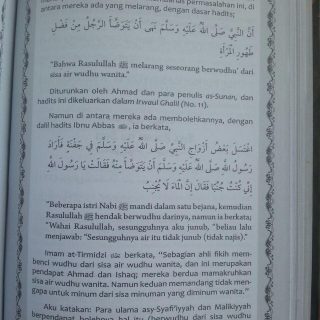 permasalahan ini, di
antara mereka ada yang melarang, dengan dasar hadits;
أَنَّ النَّبِيَّ صَلَّى اللهُ عَلَيْهِ وَسَلَّمَ نَهَى أَنْ يَتَوَضَّأَ الرَّجُلُ مِنْ فَضْلِ
طَهُورِ الْمَرْأَةِ
"Bahwa Rasulullah ﷺ melarang seseorang berwudhu' dari
sisa air wudhu wanita."
Diturunkan oleh Ahmad dan para penulis as-Sunan, dan
hadits ini dikeluarkan dalam Irwaul Ghalil (No. 11).
Namun di antara mereka ada membolehkannya, dengan
dalil hadits Ibnu Abbas ﷺ, ia berkata,
اغْتَسَلَ بَعْضُ أَزْوَاجِ النَّبِيِّ صَلَّى اللهُ عَلَيْهِ وَسَلَّمَ فِي جَفْنَةٍ فَأَرَادَ
رَسُولُ اللهِ صَلَّى اللهُ عَلَيْهِ وَسَلَّمَ أَنْ يَتَوَضَّأَ مِنْهُ فَقَالَتْ يَا رَسُولَ اللهِ
إِنِّي كُنْتُ جُنُبًا فَقَالَ إِنَّ الْمَاءَ لَا يُجْنِبُ
"Beberapa istri Nabi ﷺ mandi dalam satu bejana, kemudian
Rasulullah ﷺ hendak berwudhu darinya, namun ia berkata;
"Wahai Rasulullah, sesungguhnya aku junub, "beliau lalu
menjawab: "Sesungguhnya air itu tidak junub (tidak najis)."
Imam at-Tirmidzi berkata, "Sebagian ahli fikih mem-
benci wudhu dari sisa air wudhu wanita, dan ini merupakan
pendapat Ahmad dan Ishaq; mereka berdua mamakruhkan
sisa air wudhu wanita. Namun keduan memandang tidak men-
gapa untuk minum dari sisa minuman yang diminum wanita."
Aku katakan: Para ulama asy-Syafi'iyyah dan Malikiyyah
berpendapat bolehnya hal itu (berwudhu dari sisa wudhu